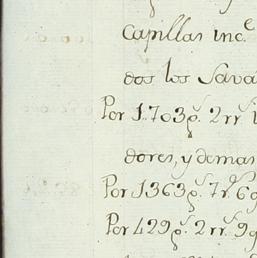 capillas inc.e
dos los Sava
Por 1.703p.s 2rr.s
dores, y demas
Por 1363p.s 7r.s 6g
Por 429p.s 2rr.s 9g